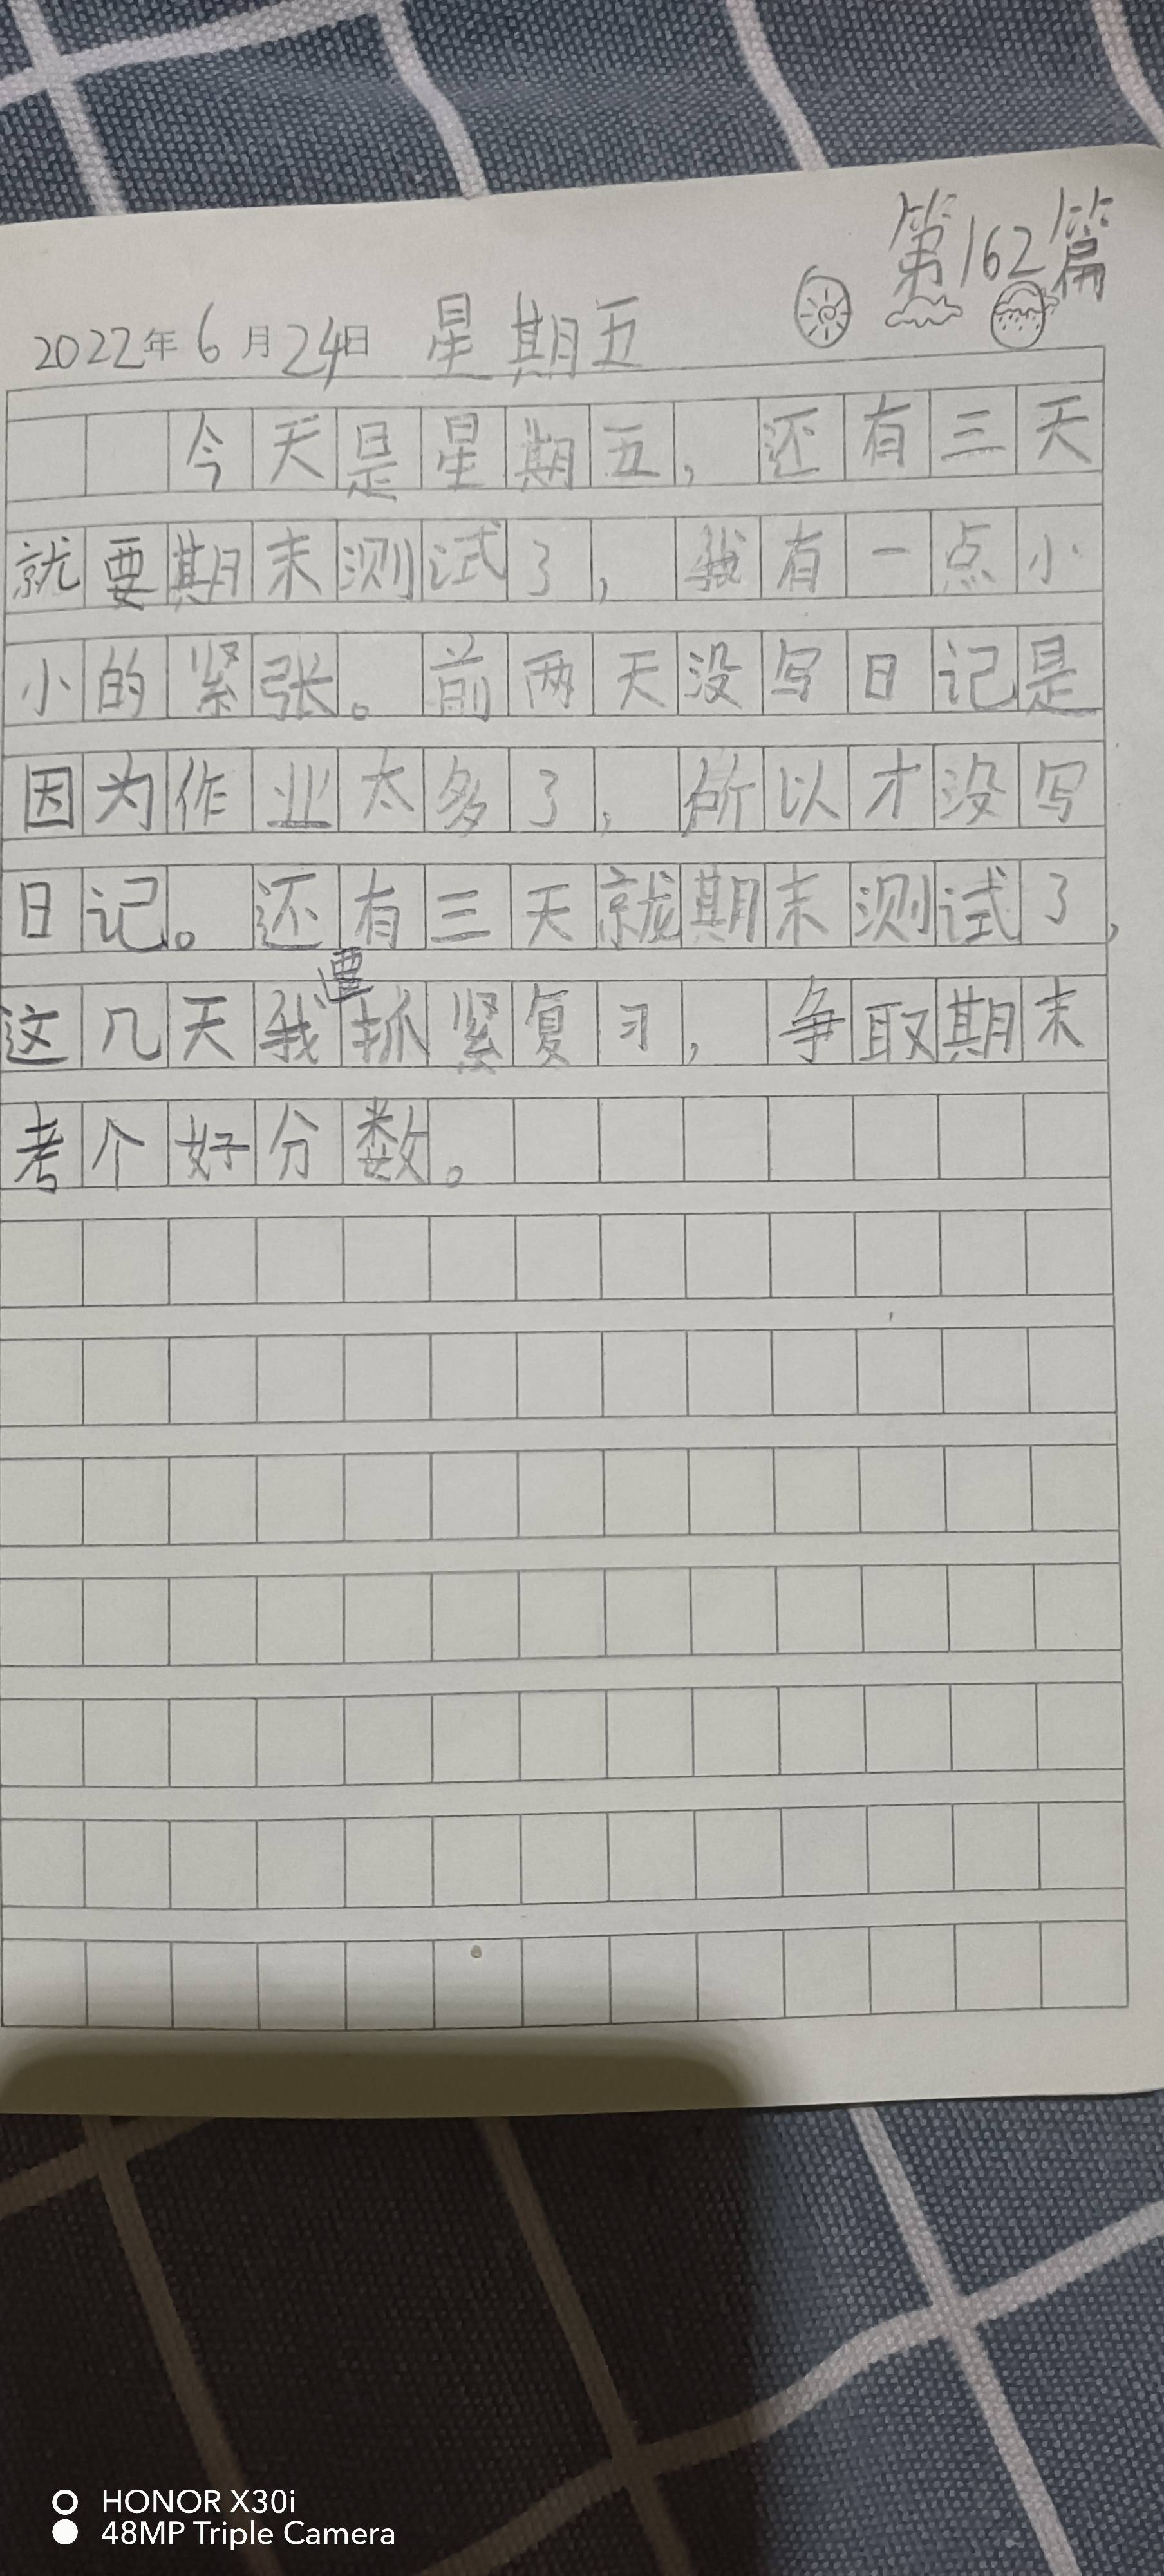 第162篇
2022年6月24日 星期五
今天是星期五，还有三天
就要期末测试了，我有一点小
小的紧张。前两天没写日记是
因为作业太多了，所以才没写
日记。还有三天就期末测试了，
这几天我抓紧复习，争取期末
考个好分数。
HONOR X30i
48MP Triple Camera